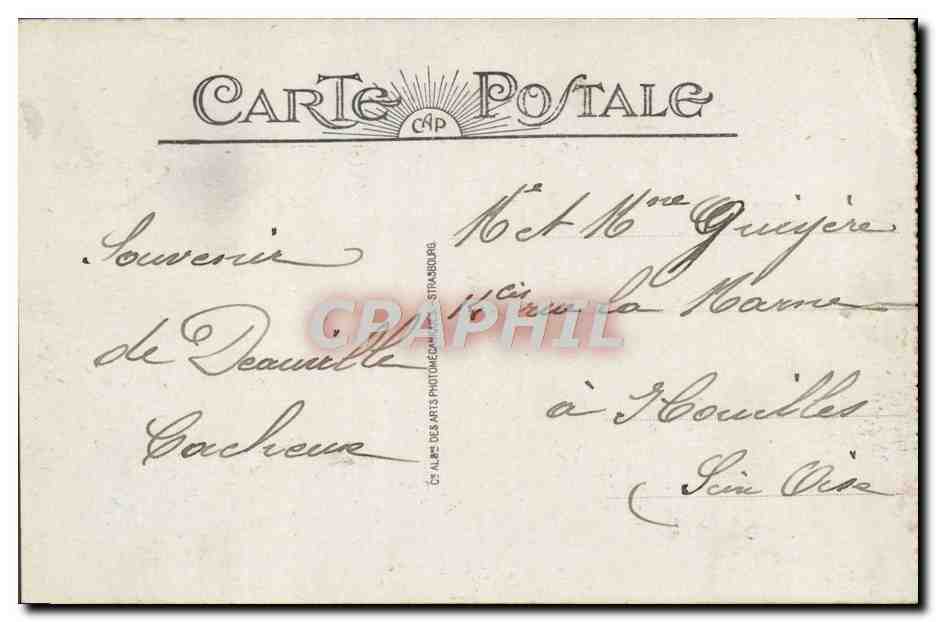 CARTE POSTALE
CAP
Souvenir
de Deauville
Cacheux
Cie ALSne DES ARTS PHOTOMÉCANIQUES - STRASBOURG.
Mr et Mme
rue la Marne
à Houilles
Seine Oise
CPAPHIL